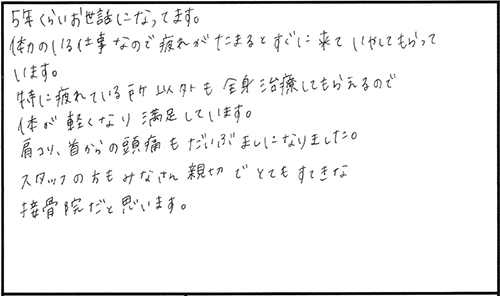 5年くらいお世話になってます。
体力のいる仕事なので疲れがたまるとすぐに来ていやしてもらって
います。
特に疲れている所以外も全身治療してもらえるので
体が軽くなり満足しています。
肩コリ、首からの頭痛もだいぶましになりました。
スタッフの方もみなさん親切でとてもすてきな
接骨院だと思います。